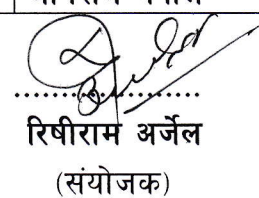 रिषीराम अर्जेल
(संयोजक)